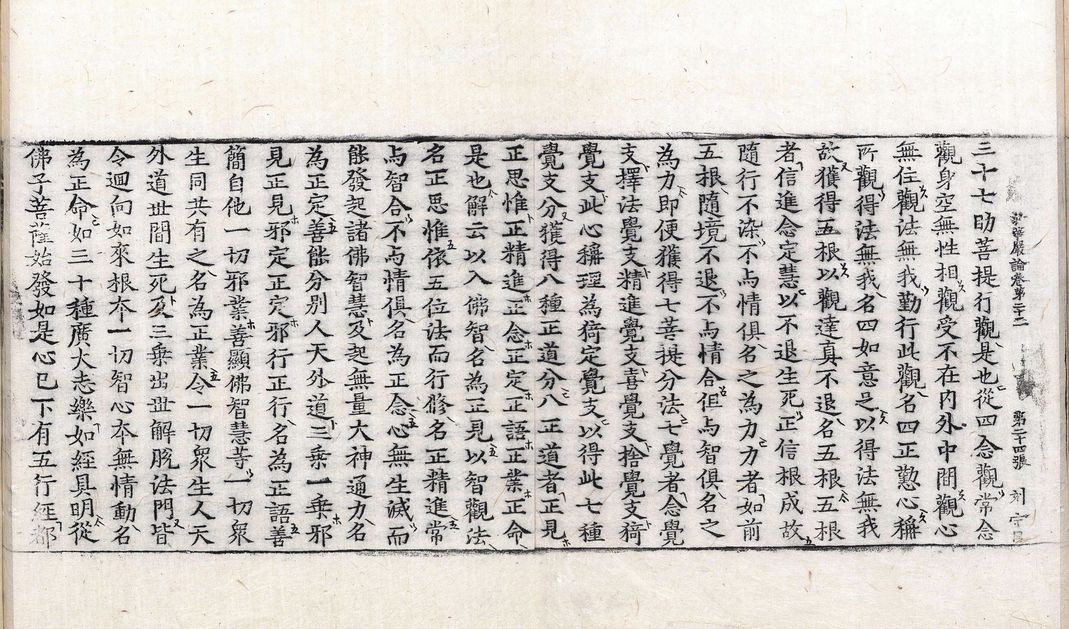 華嚴論卷第二十二 第二十四張 刻
三十七助菩提行觀是也從四念觀常念
觀身空無性相觀受不在內外中間觀心
無住觀法無我勤行此觀名四正懃心稱
所觀得法無我名四如意足以得法無我
故獲得五根以觀達真不退名五根五根
者信進念定慧以不退生死正信根成故
隨行不染不与情俱名之為力力者如前
五根隨境不退不与情合但与智俱名之
為力即便獲得七菩提分法七覺者念覺
支擇法覺支精進覺支喜覺支捨覺支猗
覺支此心稱理為猗定覺支以得此七種
覺支分獲得八種正道分八正道者正見
正思惟正精進正念正定正語正業正命
是也解云以入佛智名為正見以智觀法
名正思惟依五位法而行修名正精進常
与智合不与情俱名為正念心無生滅而
能發起諸佛智慧及起無量大神通力名
為正定善能分別人天外道三乘一乘邪
見正見邪定正定邪行正行名為正語善
簡自他一切邪業善顯佛智慧等一切眾
生同共有之名為正業令一切眾生人天
外道世間生死及三乘出世解脫法門皆
令迴向如來根本一切智心本無情動名
為正命如三十種廣大志樂如經具明從
佛子菩薩始發如是心已下有五行經都